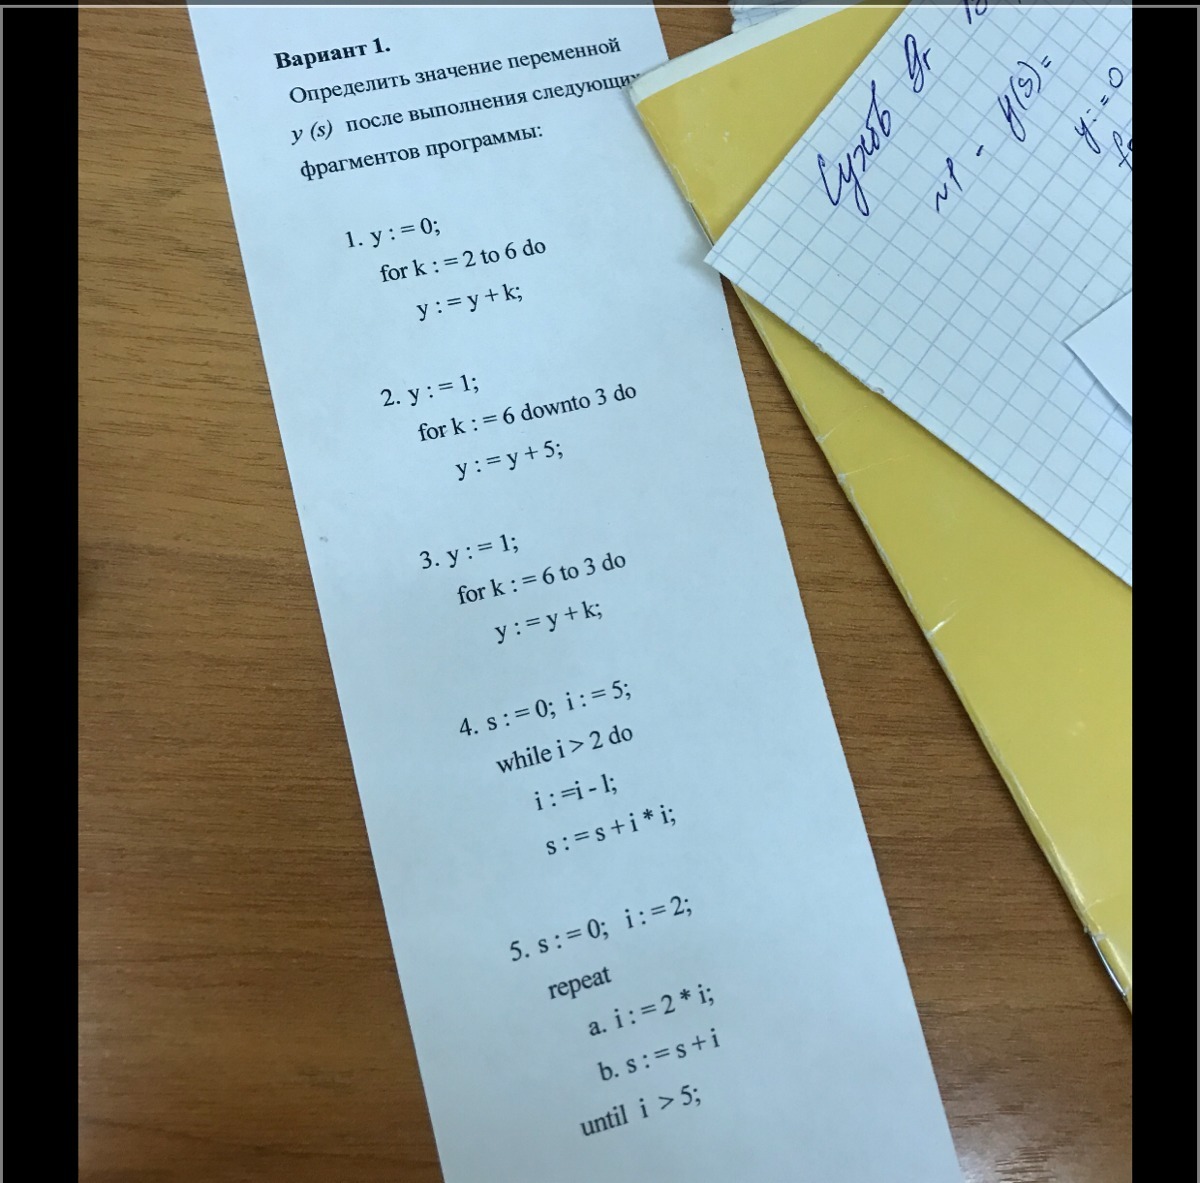 Вариант 1.
Определить значение переменной
y (s) после выполнения следующих
фрагментов программы:
1. y : = 0;
for k : = 2 to 6 do
y : = y + k;
2. y : = 1;
for k : = 6 downto 3 do
y : = y + 5;
3. y : = 1;
for k : = 6 to 3 do
y : = y + k;
4. s : = 0; i : = 5;
while i > 2 do
i : =i - 1;
s : = s + i * i;
5. s : = 0; i : = 2;
repeat
a. i : = 2 * i;
b. s : = s + i
until i > 5;
Сухов 9г
№1 - y(s)=
y:=0